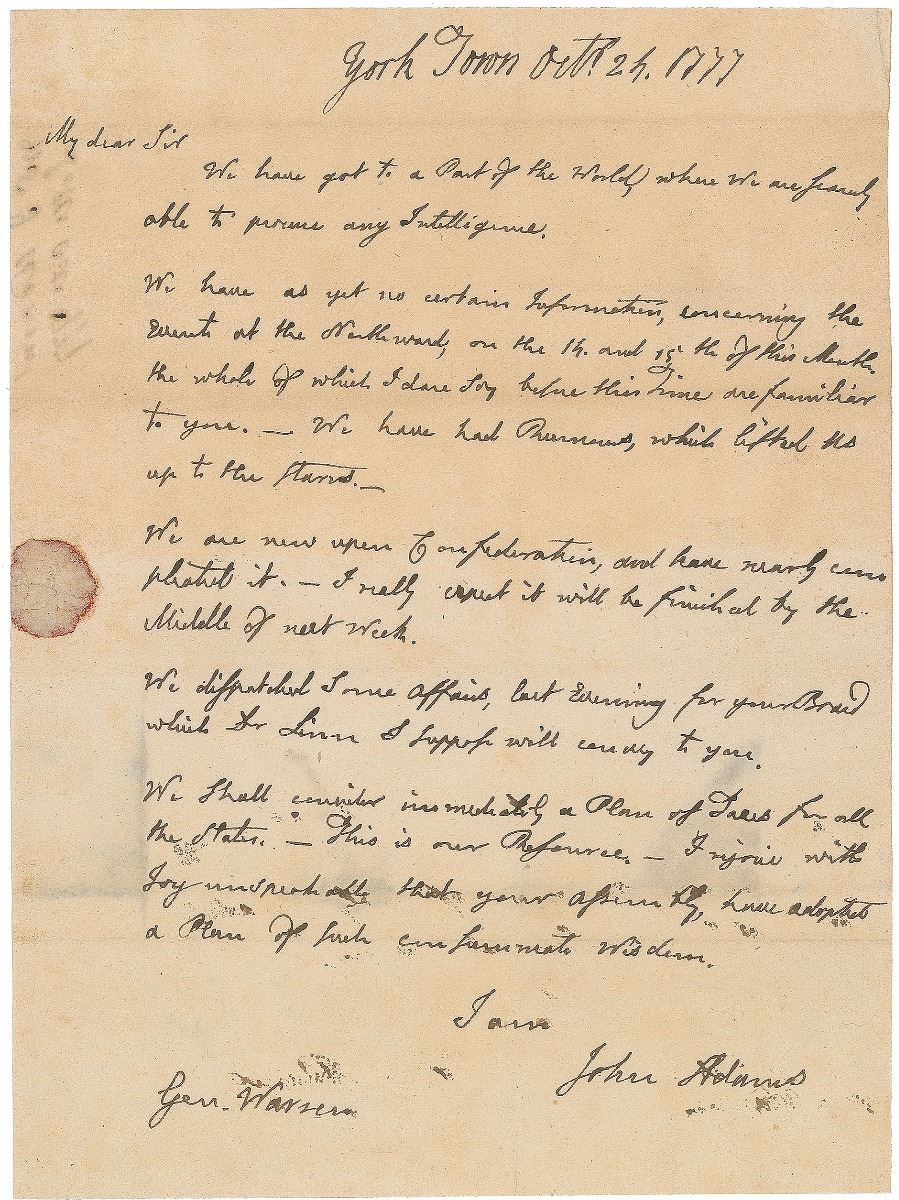 York Town Octr. 24. 1777
My dear Sir
We have got to a Part of the World, where We are scarcely
able to procure any Intelligence.
We have as yet no certain Information, concerning the
Events at the Northward, on the 14. and 15th of this Month,
the whole of which I dare Say before this Time are familiar
to you. — We have had Rumours, which lifted Us
up to the Starrs. —
We are now upon Confederation, and have nearly com
pleated it. — I really expect it will be finished by the
Middle of next Week.
We dispatched Some affairs, last Evening for your Board
which Dr Linn I suppose will convey to you.
We Shall consider immediately a Plan of Taxes for all
the States. — This is our Resource. — I rejoice with
Joy unspeakable that your assembly, have adopted
a Plan of such consummate Wisdom.
I am
John Adams
Gen. Warren